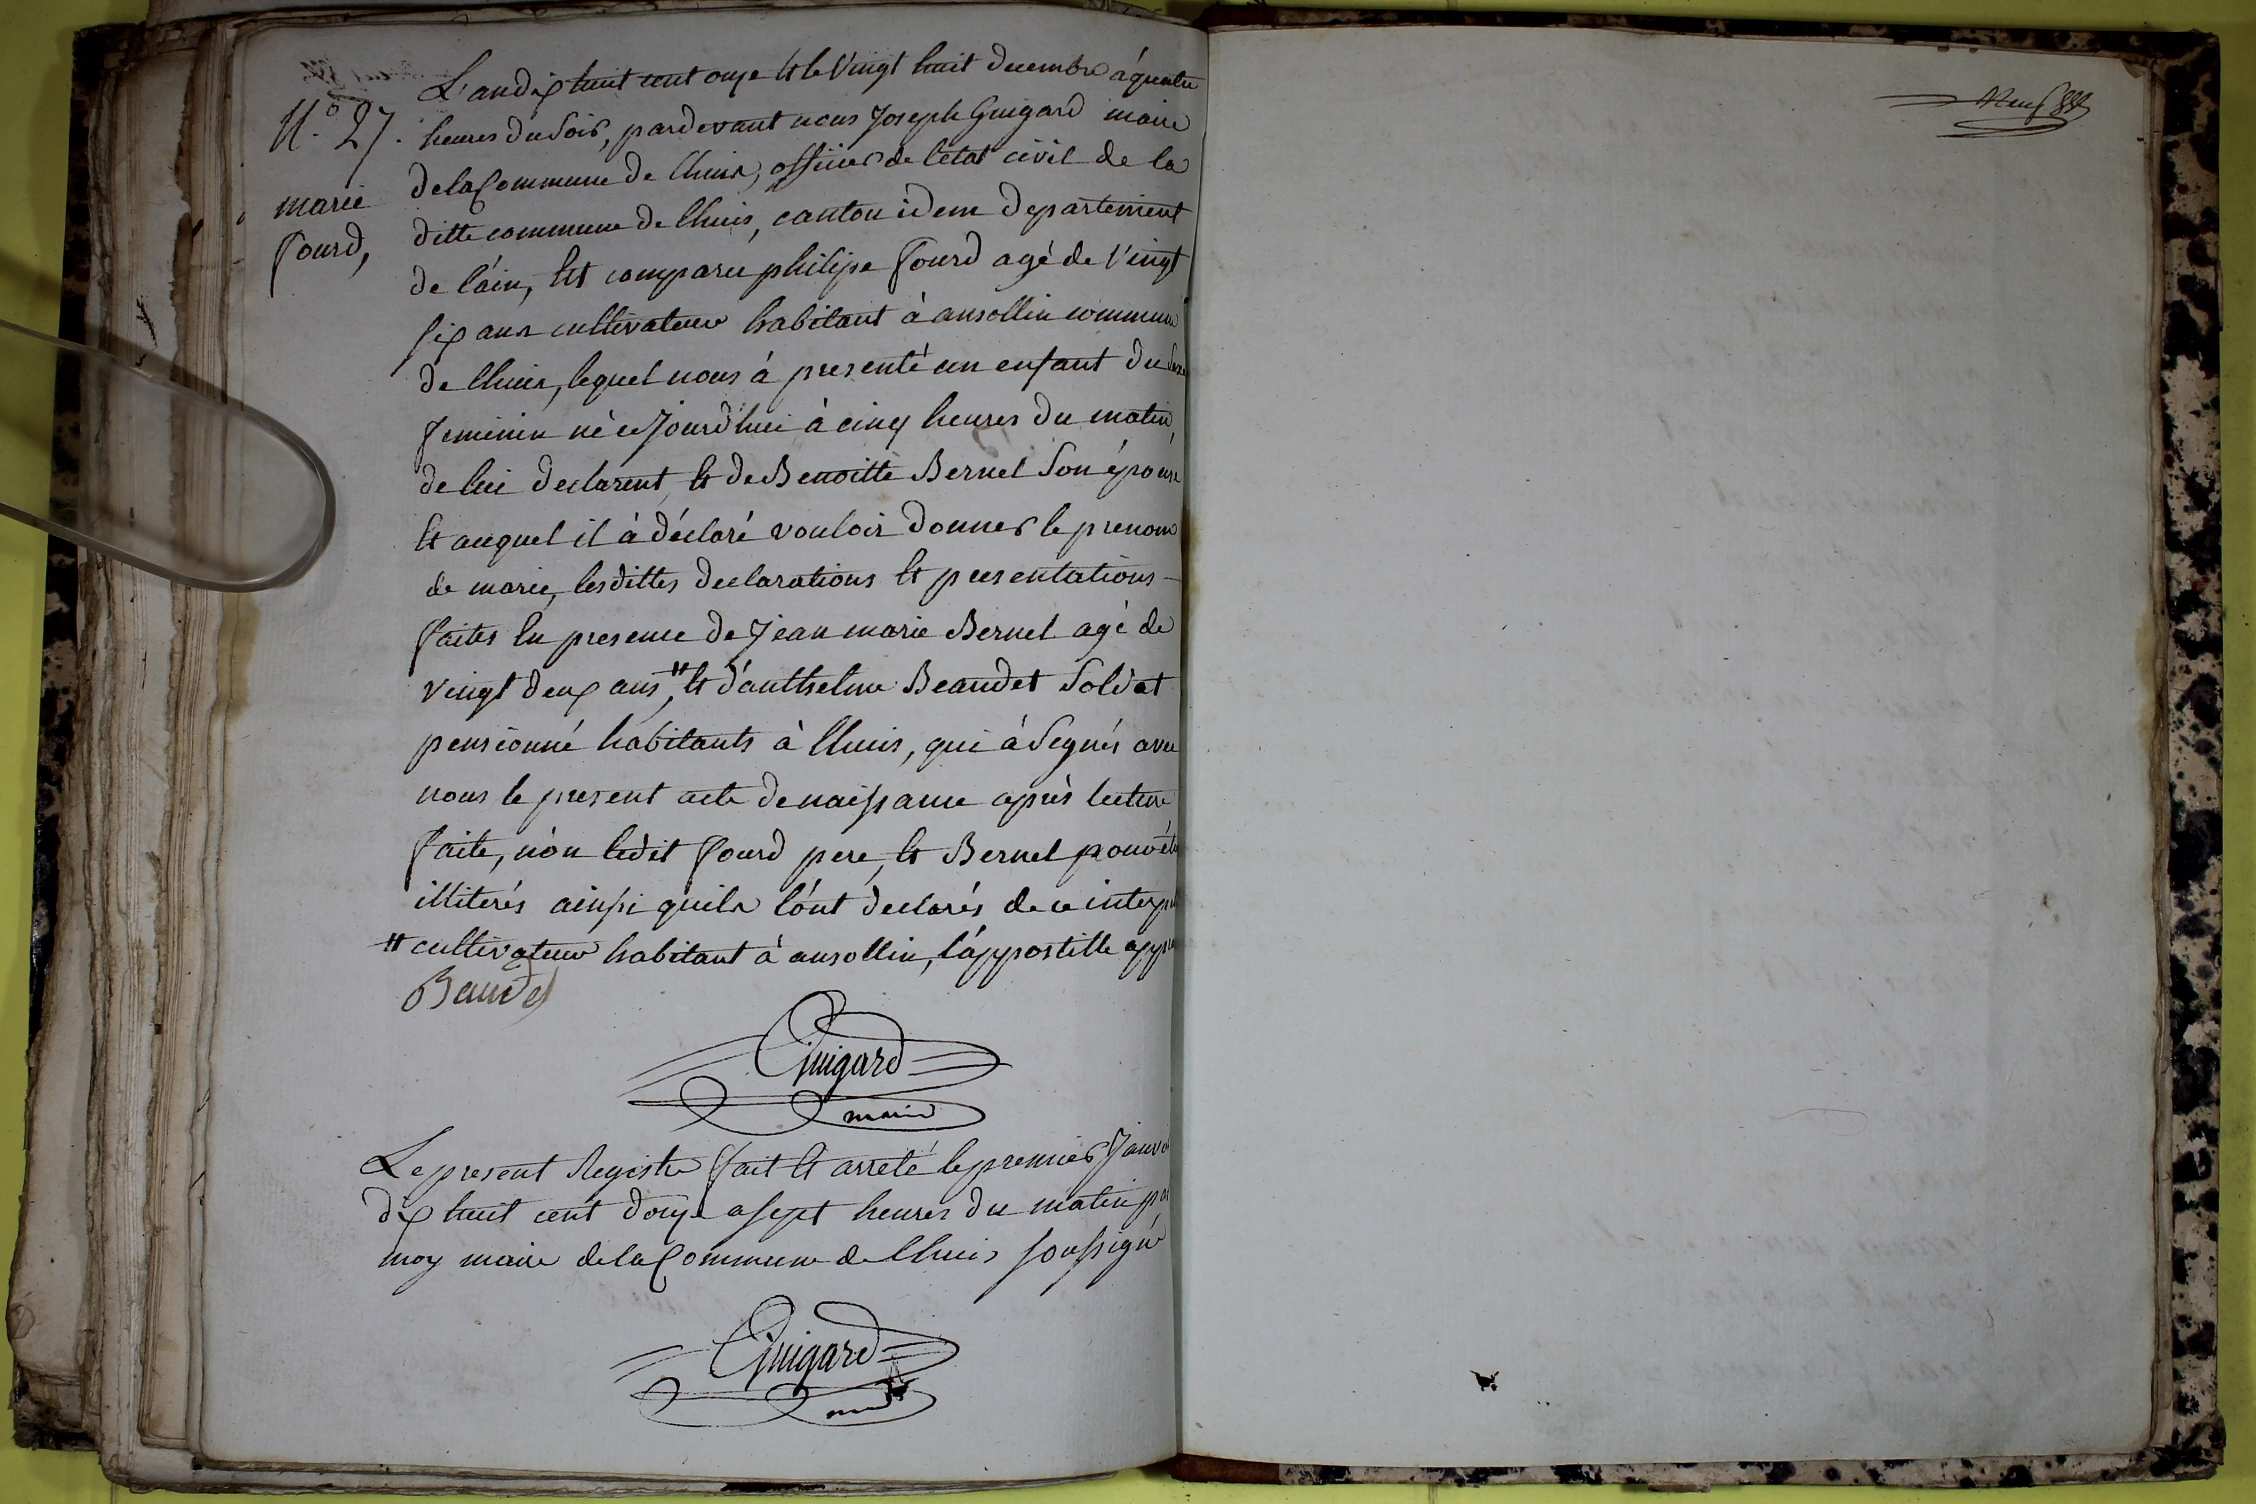 N.° 27.
marie
Sourd,
L'an dix huit cent onze Et le Vingt huit decembre à quatre
heures du Soir, pardevant nous Joseph Guigard maire
de la Commune de lhuis, officier de l'état civil de la
ditte commune de lhuis, canton idem departement
de l'ain, Est comparu philipe Sourd agé de Vingt
six ans cultivateur habitant à ansollin commune
de lhuis, lequel nous à presenté un enfant du Sexe
feminin né ce Jourd'hui à cinq heures du matin,
de lui declarent, Et de Benoitte Bernel Son épouse
Et auquel il à déclaré vouloir donner le prenom
de marie, lesdittes declarations Et presentations -
faites En presence de Jean marie Bernel agé de
vingt deux ans, # Et d'anthelme Beaudet Soldat
pensionné habitants à lhuis, qui à Segnés avec
nous le present acte de naissance après lecture
faite, nón ledit Sourd pere, Et Bernel pour être
illiterés ainsi quils l'ónt declarés de ce
# cultivateur habitant à ansollin, l'appostille
Baudet
Guigard
maire
Le present Registre fait Et arreté le premier Janvier
dix huit cent douze a sept heures du matin par
moy maire de la Commune de lhuis soussigné
Guigard